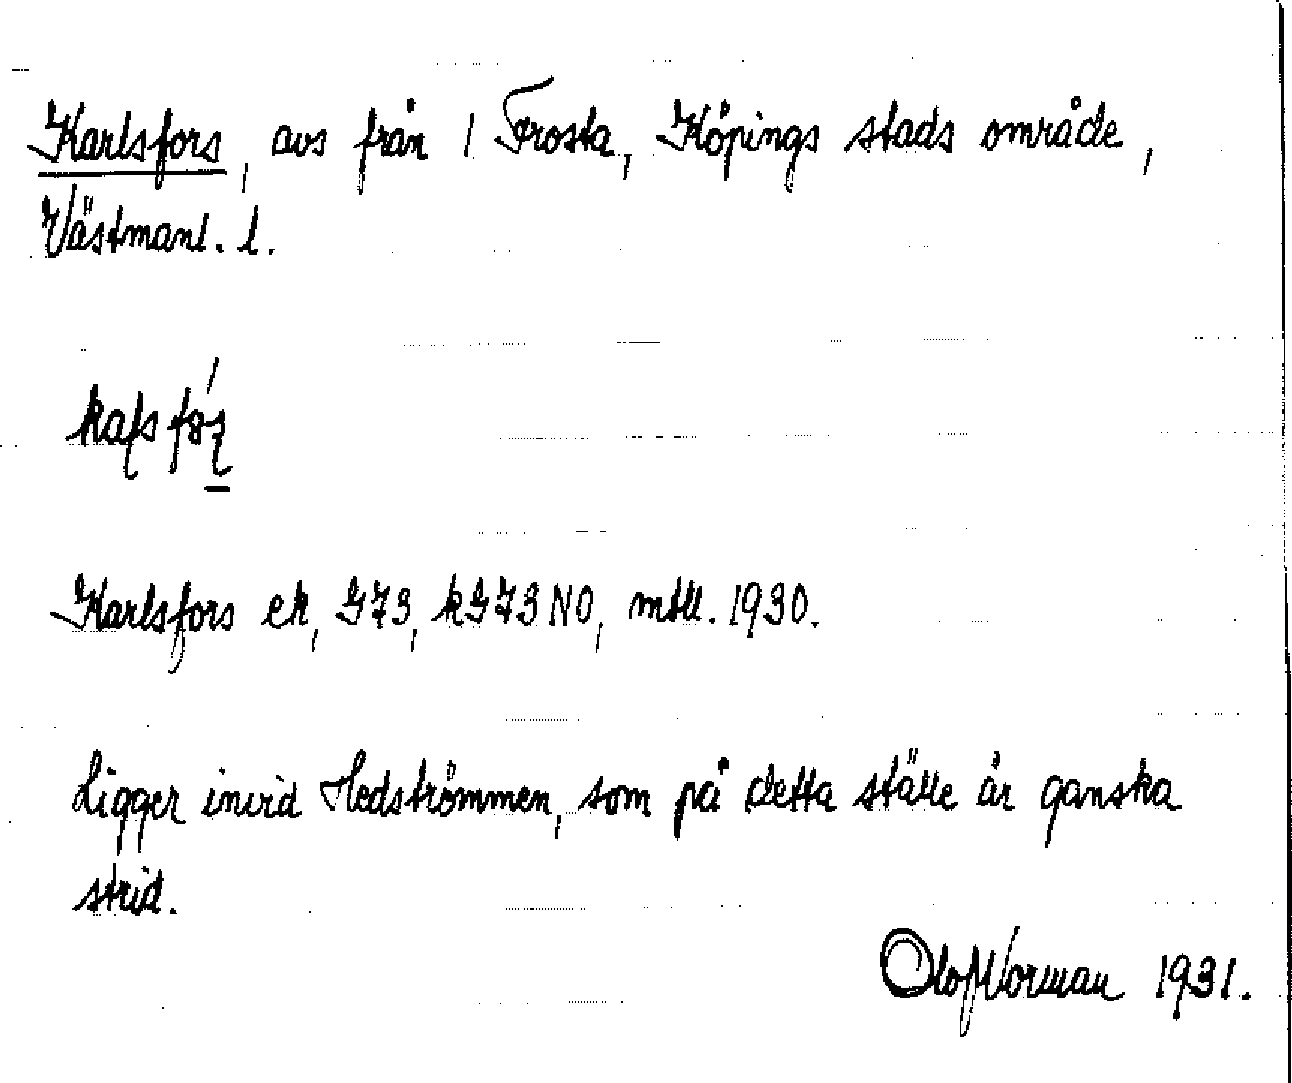 Karlsfors, avs från 1 Frosta, Köpings stads område,
Västmanl. l.
Karlsfors ek, G73, kG73NO, mtll. 1930.
Ligger invid Hedströmmen, som på detta ställe är ganska
strid.
Olof Norman 1931.